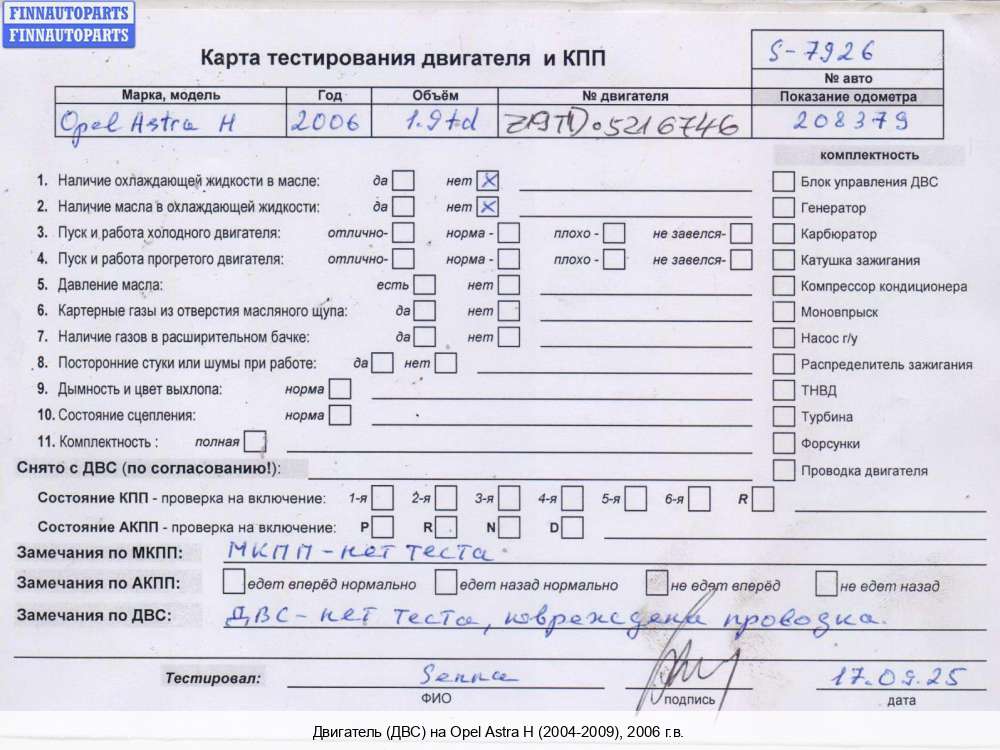 FINNAUTOPARTS
FINNAUTOPARTS
Карта тестирования двигателя и КПП
S-7926
№ авто
Марка, модель Год Объём № двигателя Показание одометра
Opel Astra H 2006 1.9td Z19TD 05216746 208379
комплектность
1. Наличие охлаждающей жидкости в масле: да нет X Блок управления ДВС
2. Наличие масла в охлаждающей жидкости: да нет X Генератор
3. Пуск и работа холодного двигателя: отлично- норма - плохо - не завелся- Карбюратор
4. Пуск и работа прогретого двигателя: отлично- норма - плохо - не завелся- Катушка зажигания
5. Давление масла: есть нет Компрессор кондиционера
6. Картерные газы из отверстия масляного щупа: да нет Моновпрыск
7. Наличие газов в расширительном бачке: да нет Насос г/у
8. Посторонние стуки или шумы при работе: да нет Распределитель зажигания
9. Дымность и цвет выхлопа: норма ТНВД
10. Состояние сцепления: норма Турбина
11. Комплектность : полная Форсунки
Снято с ДВС (по согласованию!): Проводка двигателя
Состояние КПП - проверка на включение: 1-я 2-я 3-я 4-я 5-я 6-я R
Состояние АКПП - проверка на включение: P R N D
Замечания по МКПП: МКПП - нет теста.
Замечания по АКПП: едет вперёд нормально едет назад нормально не едет вперёд не едет назад
Замечания по ДВС: ДВС - нет теста, повреждена проводка.
Тестировал: 17.09.25
ФИО подпись дата
Двигатель (ДВС) на Opel Astra H (2004-2009), 2006 г.в.